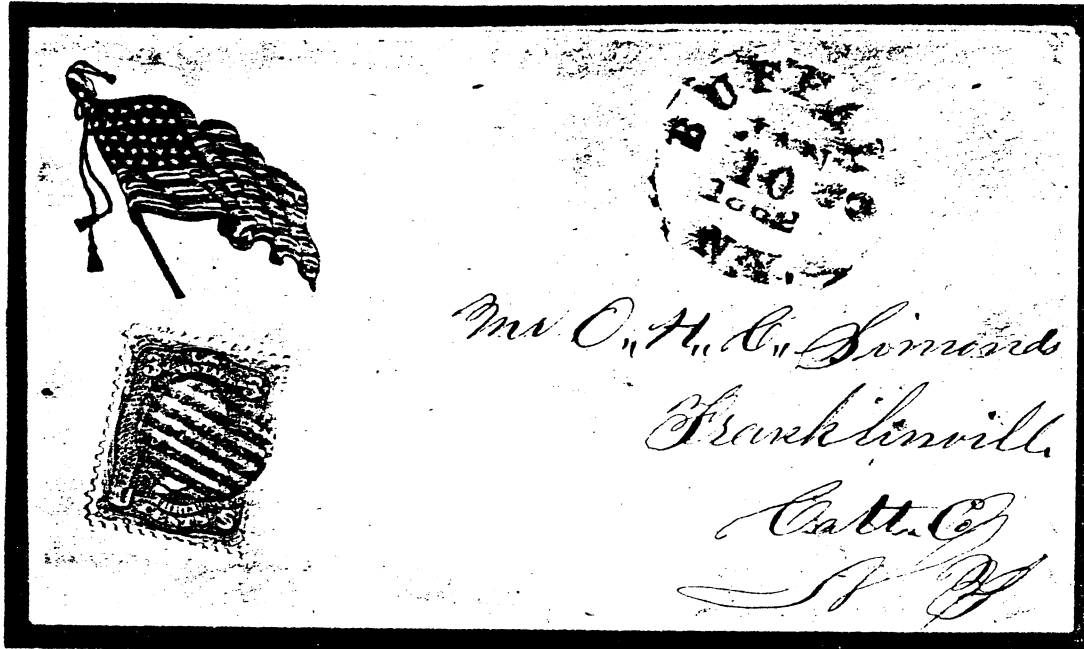 BUFF
10
1862
N.Y.
Mr O,, H,, C,, Simonds
Franklinvill
Catt. Co
N Y